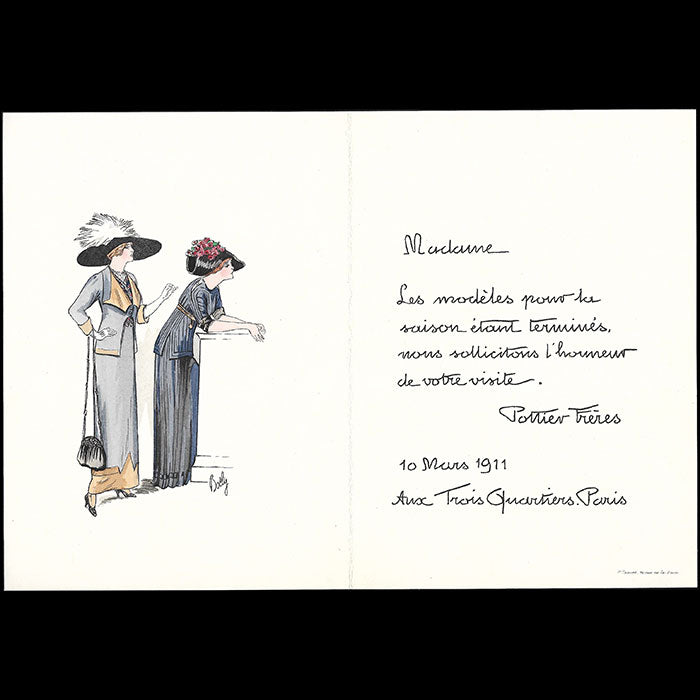 Madame
Les modèles pour la
saison étant terminés,
nous sollicitons l'honneur
de votre visite.
Pottier Frères
10 Mars 1911
Aux Trois Quartiers. Paris